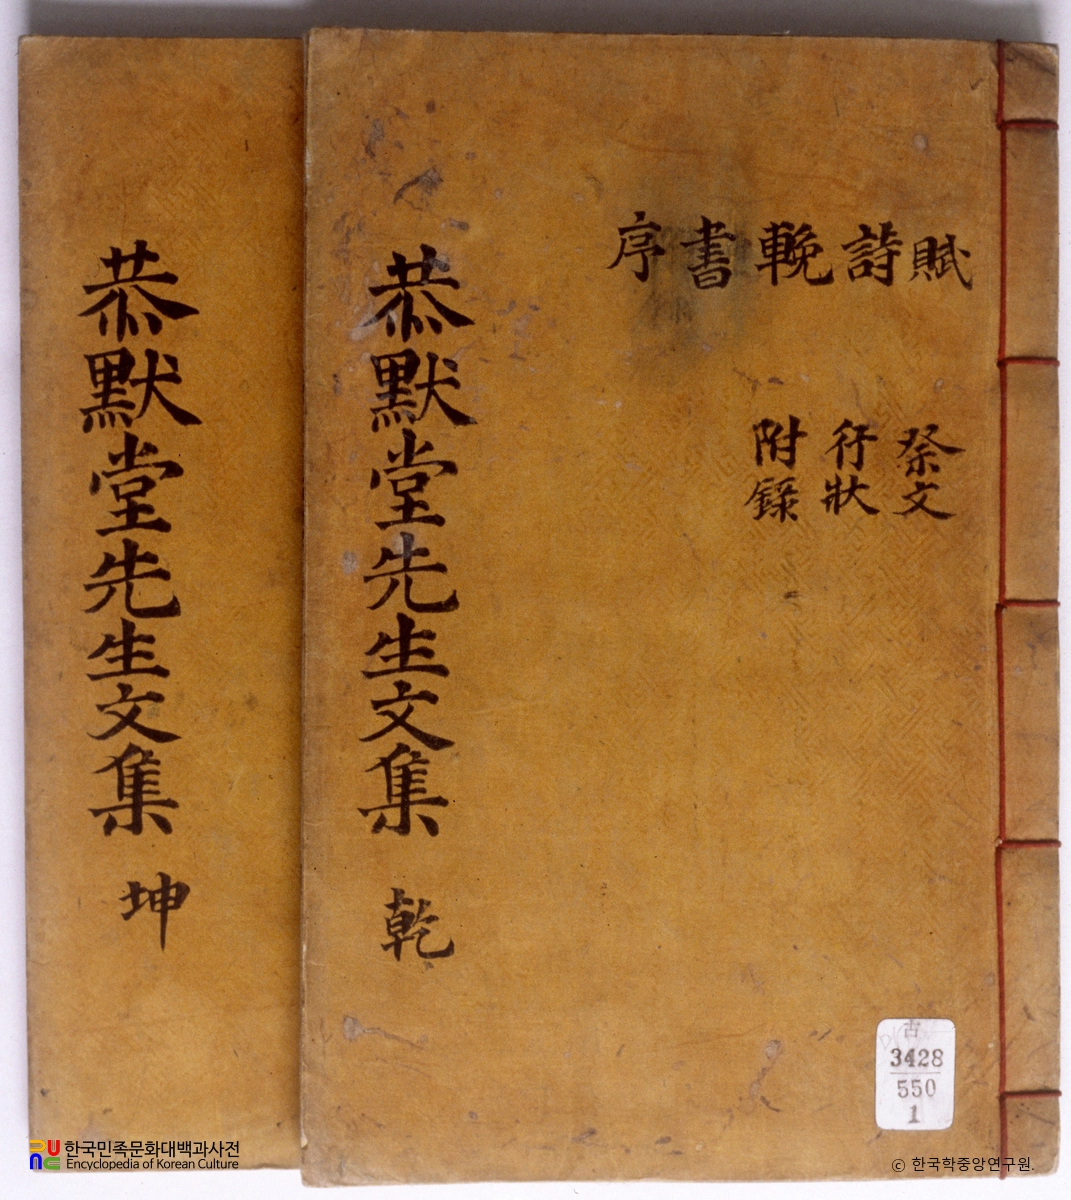 賦詩輓書序
祭文
行狀
附錄
恭默堂先生文集 乾
恭默堂先生文集 坤
古
3428
550
1
한국민족문화대백과사전
Encyclopedia of Korean Culture
© 한국학중앙연구원.